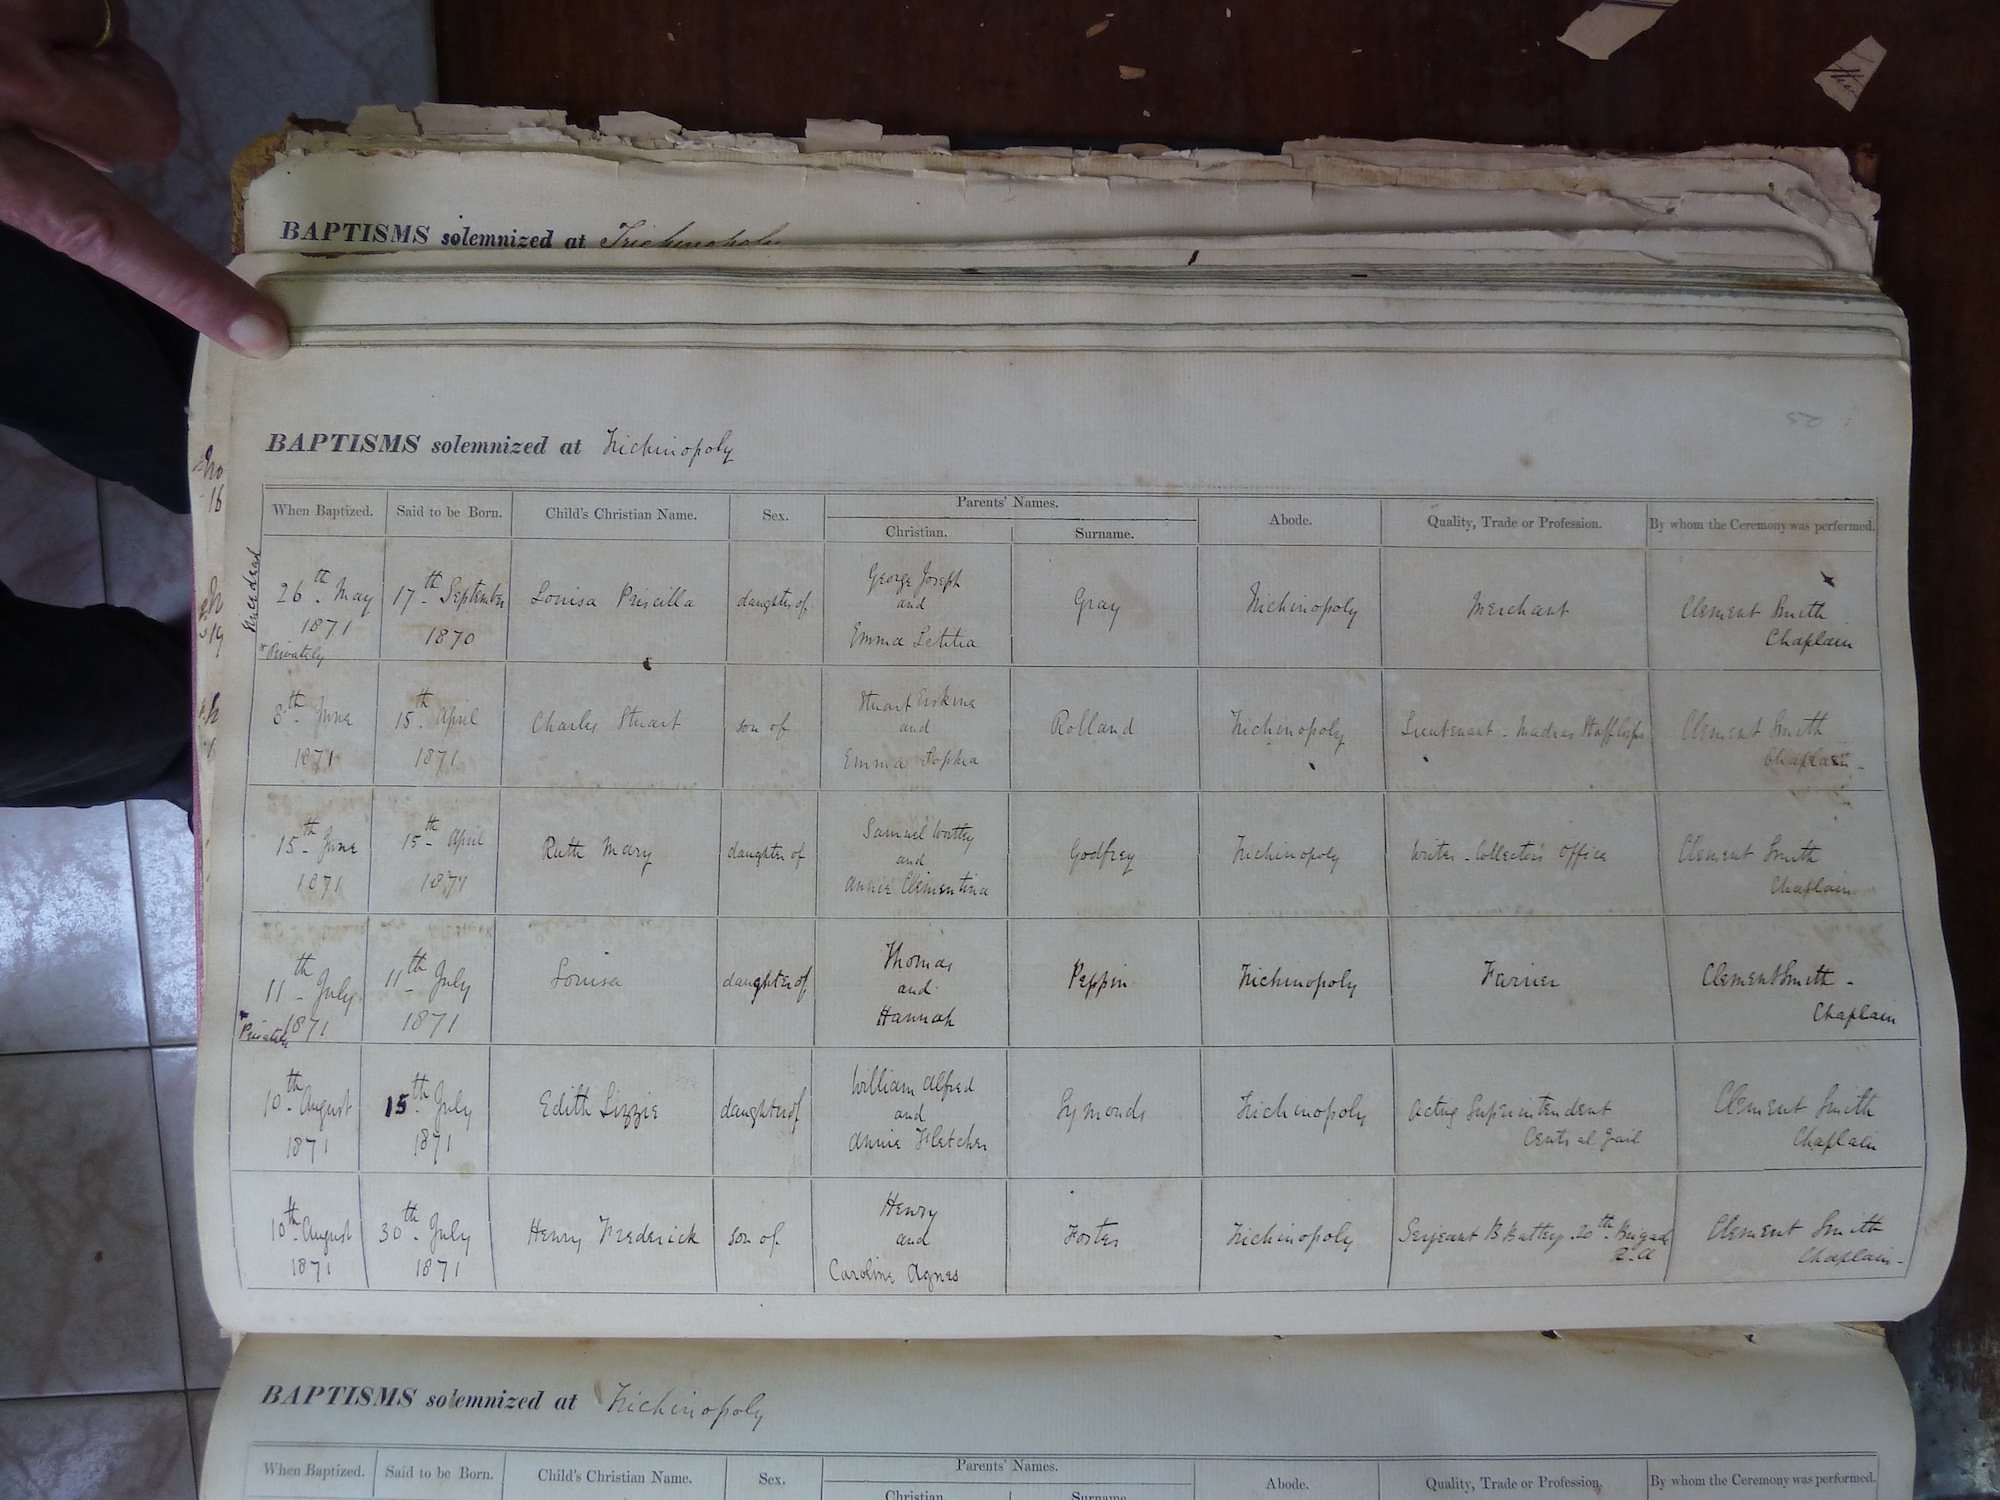 BAPTISMS solemnized at Trichinopoly
BAPTISMS solemnized at Trichinopoly
When Baptized. Said to be Born. Child's Christian Name. Sex. Parents' Names. Abode. Quality, Trade or Profession. By whom the Ceremony was performed.
Christian. Surname.
26th May 17th September Louisa Priscilla daughter of George Joseph Gray Trichinopoly Merchant Clement Smith
1871 1870 and Chaplain
*Privately Emma Letitia
8th June 15th April Charles Stuart son of Stuart Erskine Rolland Trichinopoly Lieutenant - Madras Staff Corps Clement Smith
1871 1871 and Chaplain
Emma Sophia
15th June 15th April Ruth Mary daughter of Samuel Godfrey Trichinopoly Writer - Collector's Office Clement Smith
1871 1871 and Chaplain
Annie Clementina
11th July 11th July Louisa daughter of Thomas Peppin Trichinopoly Farrier Clement Smith -
1871 1871 and Chaplain
*Privately Hannah
10th August 15th July Edith Lizzie daughter of William Alfred Symonds Trichinopoly Acting Superintendent Clement Smith
1871 1871 and Central Jail Chaplain
Annie Fletcher
10th August 30th July Henry Frederick son of Henry Foster Trichinopoly Serjeant B Battery 20th Brigade Clement Smith
1871 1871 and R.A Chaplain -
Caroline Agnes
BAPTISMS solemnized at Trichinopoly
When Baptized. Said to be Born. Child's Christian Name. Sex. Parents' Names. Abode. Quality, Trade or Profession. By whom the Ceremony was performed.
Christian Surname.